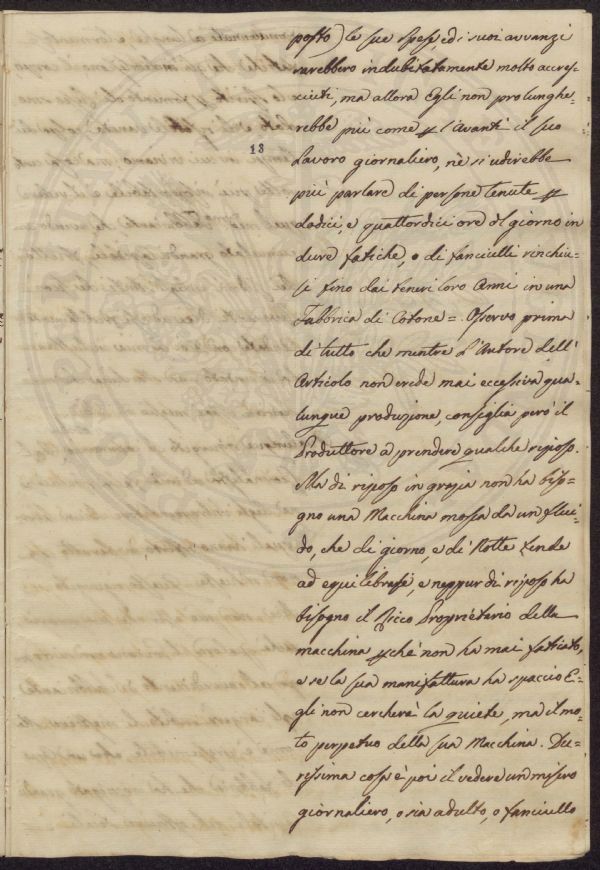 posto) le sue spese, ed i suoi avvanzi
sarebbero indubitatamente molto accres=
sciuti, ma allora Egli non prolunghe=
rebbe più come p l'avanti il suo
13
Lavoro giornaliero, nè si udirebbe
più parlare di persone tenute p
dodici, e quattordici ore di giorno in
dure fatiche, o di fanciulli rinchiu=
si fino dai teneri loro Anni in una
Fabbrica di Cotone = Osservo prima
di tutto che mentre l'Autore dell'
Articolo non crede mai eccessiva qua=
lunque produzione, consiglia però il
Produttore a prendere qualche riposo.
Ma di riposo in grazia non ha biso=
gno una Macchina mossa da un flui=
do, che di giorno, e di Notte tende
ad equilibrarsi, e neppur di riposo ha
bisogno il Ricco Proprietario della
macchina pchè non ha mai faticato,
e se la sua manifattura ha spaccio E=
gli non cercherà la quiete, ma il mo=
to perpetuo della sua Macchina. Du=
rissima cosa è poi il vedere un misero
giornaliero, o sia adulto, o fanciullo